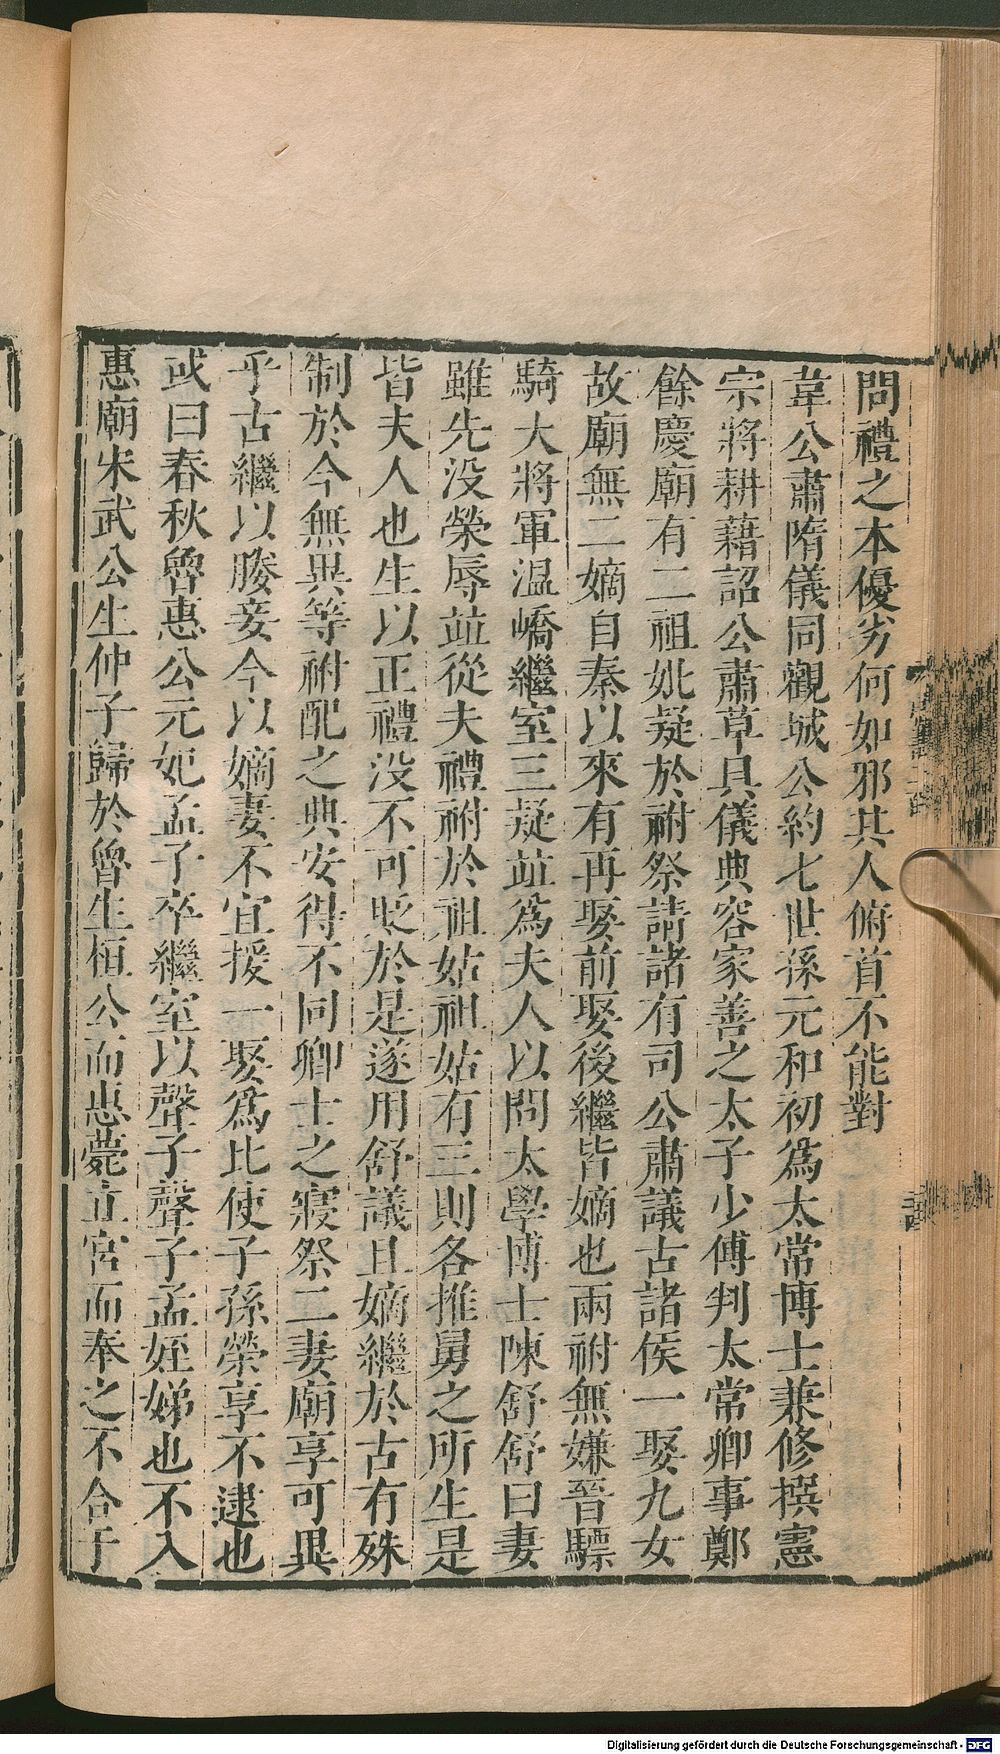 問禮之本優劣何如邪其人俯首不能對
韋公肅隋儀同觀城公約七世孫元和初爲太常博士兼修撰憲
宗將耕藉詔公肅草具儀典容家善之太子少傅判太常卿事鄭
餘慶廟有二祖妣疑於祔祭請諸有司公肅議古諸侯一娶九女
故廟無二嫡自秦以來有再娶前娶後繼皆嫡也兩祔無嫌晉驃
騎大將軍温嶠繼室三疑竝爲夫人以問太學博士陳舒舒曰妻
雖先没榮辱竝從夫禮祔於祖姑祖姑有三則各推舅之所生是
皆夫人也生以正禮没不可貶於是遂用舒議且嫡繼於古有殊
制於今無異等祔配之典安得不同卿士之寢祭二妻廟享可異
乎古繼以媵妾今以嫡妻不宜援一娶爲比使子孫榮享不逮也
或曰春秋魯惠公元妃孟子卒繼室以聲子聲子孟姪娣也不入
惠廟宋武公生仲子歸於魯生桓公而惠薨立宮而奉之不合于
Digitalisierung gefördert durch die Deutsche Forschungsgemeinschaft - DFG